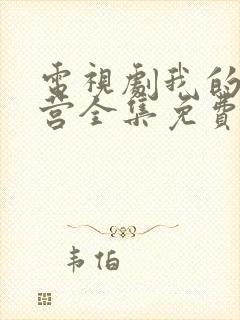 電視劇我的
营全集免費
韦伯